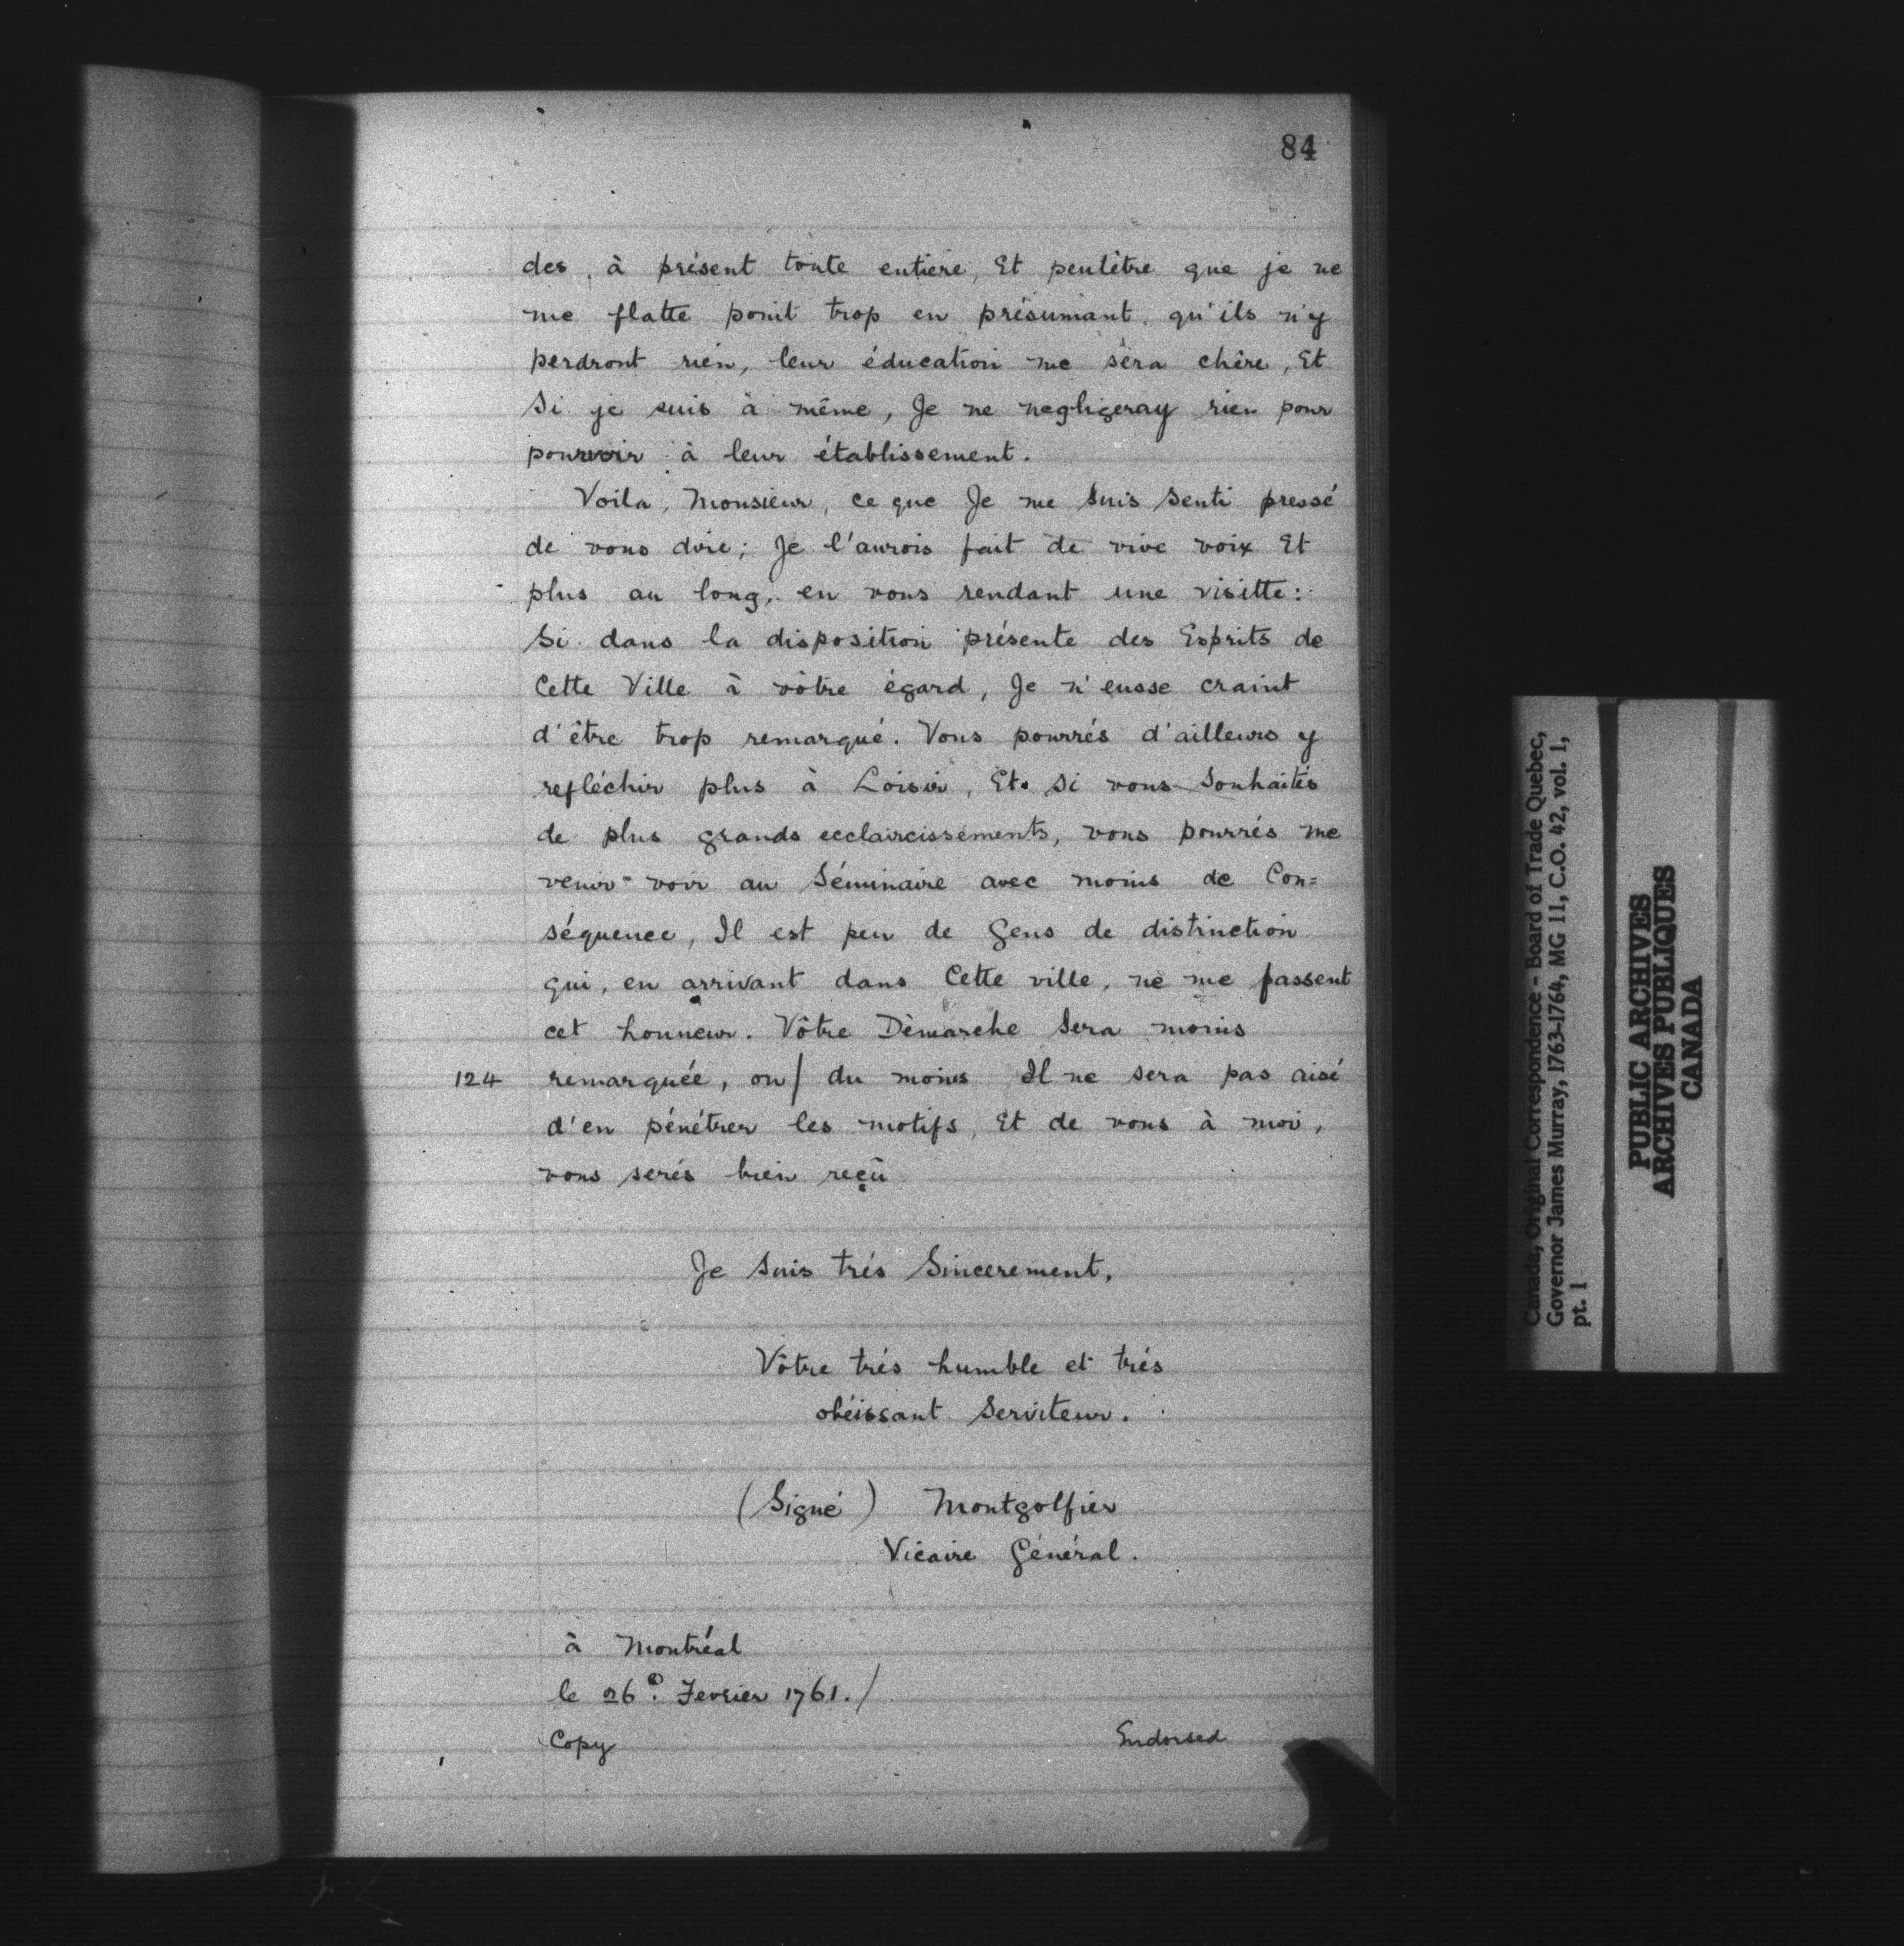 84
des à présent toute entiere, Et peutêtre que je ne
me flatte point trop en présumant qu'ils n'y
perdront rien, leur éducation me sera chère, Et
Si je suis à même, Je ne negligeray rien pour
pourvoir à leur établissement.
Voila, Monsieur, ce que Je me suis Senti pressé
de vous dire; Je l'aurois fait de vive voix Et
plus au long, en vous rendant une visitte:
Si dans la disposition présente des Esprits de
Cette Ville à vôtre égard, Je n'eusse craint
d'être trop remarqué. Vous pourrés d'ailleurs y
refléchir plus à Loisir, Et si vous Souhaités
de plus grands ecclaircissements, vous pourrés me
venir voir au Séminaire avec moins de Con=
séquence, Il est peu de Gens de distinction
qui, en arrivant dans Cette ville, ne me fassent
cet honneur. Vôtre Démarche Sera moins
124 remarquée, ou/ du moins Il ne sera pas aisé
d'en pénétrer les motifs, Et de vous à moi,
vous serés bien reçû
Je Suis trés Sincerement,
Vôtre trés humble et trés
obéissant Serviteur.
(Signé) Montgolfier
Vicaire Général.
à Montréal
le 26e. Fevrier 1761./
Copy Endorsed
Canada, Original Correspondence - Board of Trade Quebec,
Governor James Murray, 1763-1764, MG 11, C.O. 42, vol. 1,
pt. 1
PUBLIC ARCHIVES
ARCHIVES PUBLIQUES
CANADA